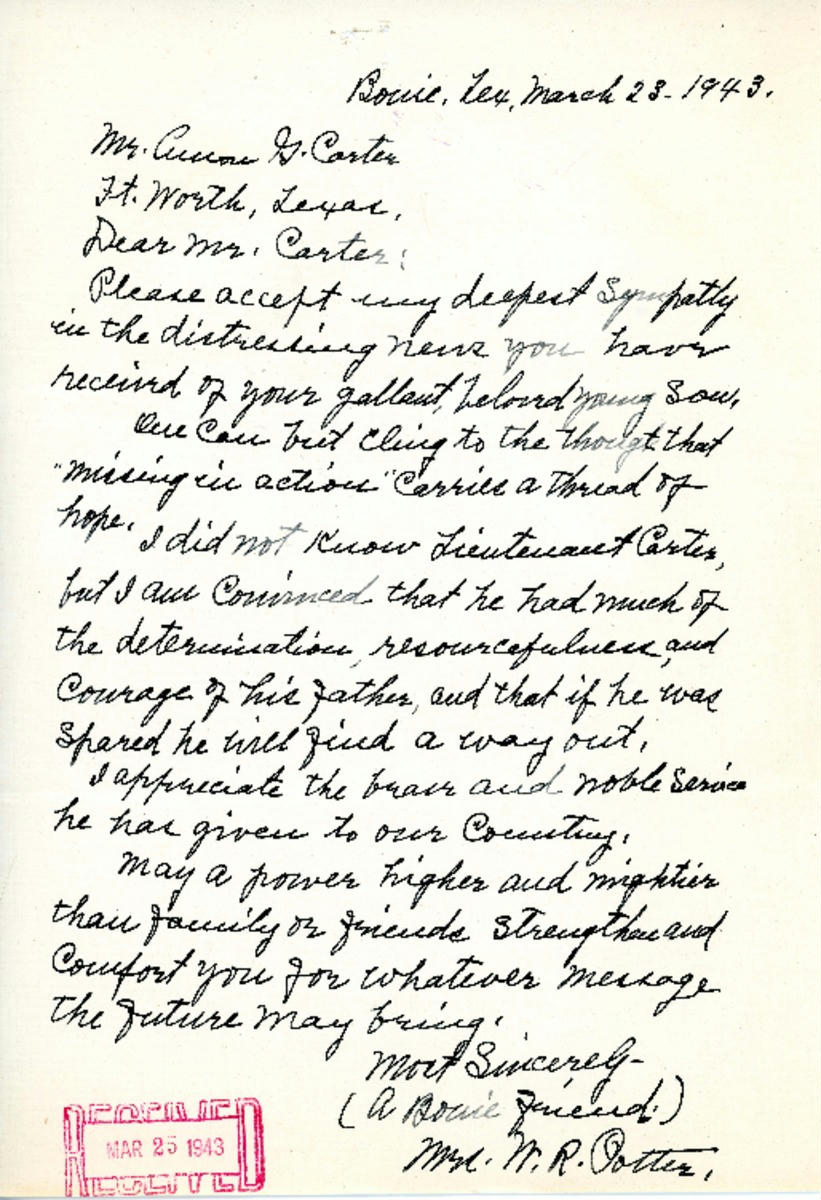 Bowie, Tex, March 23- 1943.
Mr. Amon G. Carter
Ft. Worth, Texas,
Dear Mr. Carter:
Please accept my deepest sympathy
in the distressing news you have
received of your gallant, beloved young son.
One can but cling to the thought that
"missing in action" carries a thread of
hope.
I did not know Lieutenant Carter,
but I am convinced that he had much of
the determination, resourcefulness, and
courage of his father, and that if he was
spared he will find a way out.
I appreciate the brave and noble service
he has given to our Country.
May a power higher and mightier
than family or friends strengthen and
comfort you for whatever message
the future may bring.
Most Sincerely-
(A Bowie friend.)
Mrs. W. R. Potter.
RECEIVED
MAR 25 1943
RECEIVED